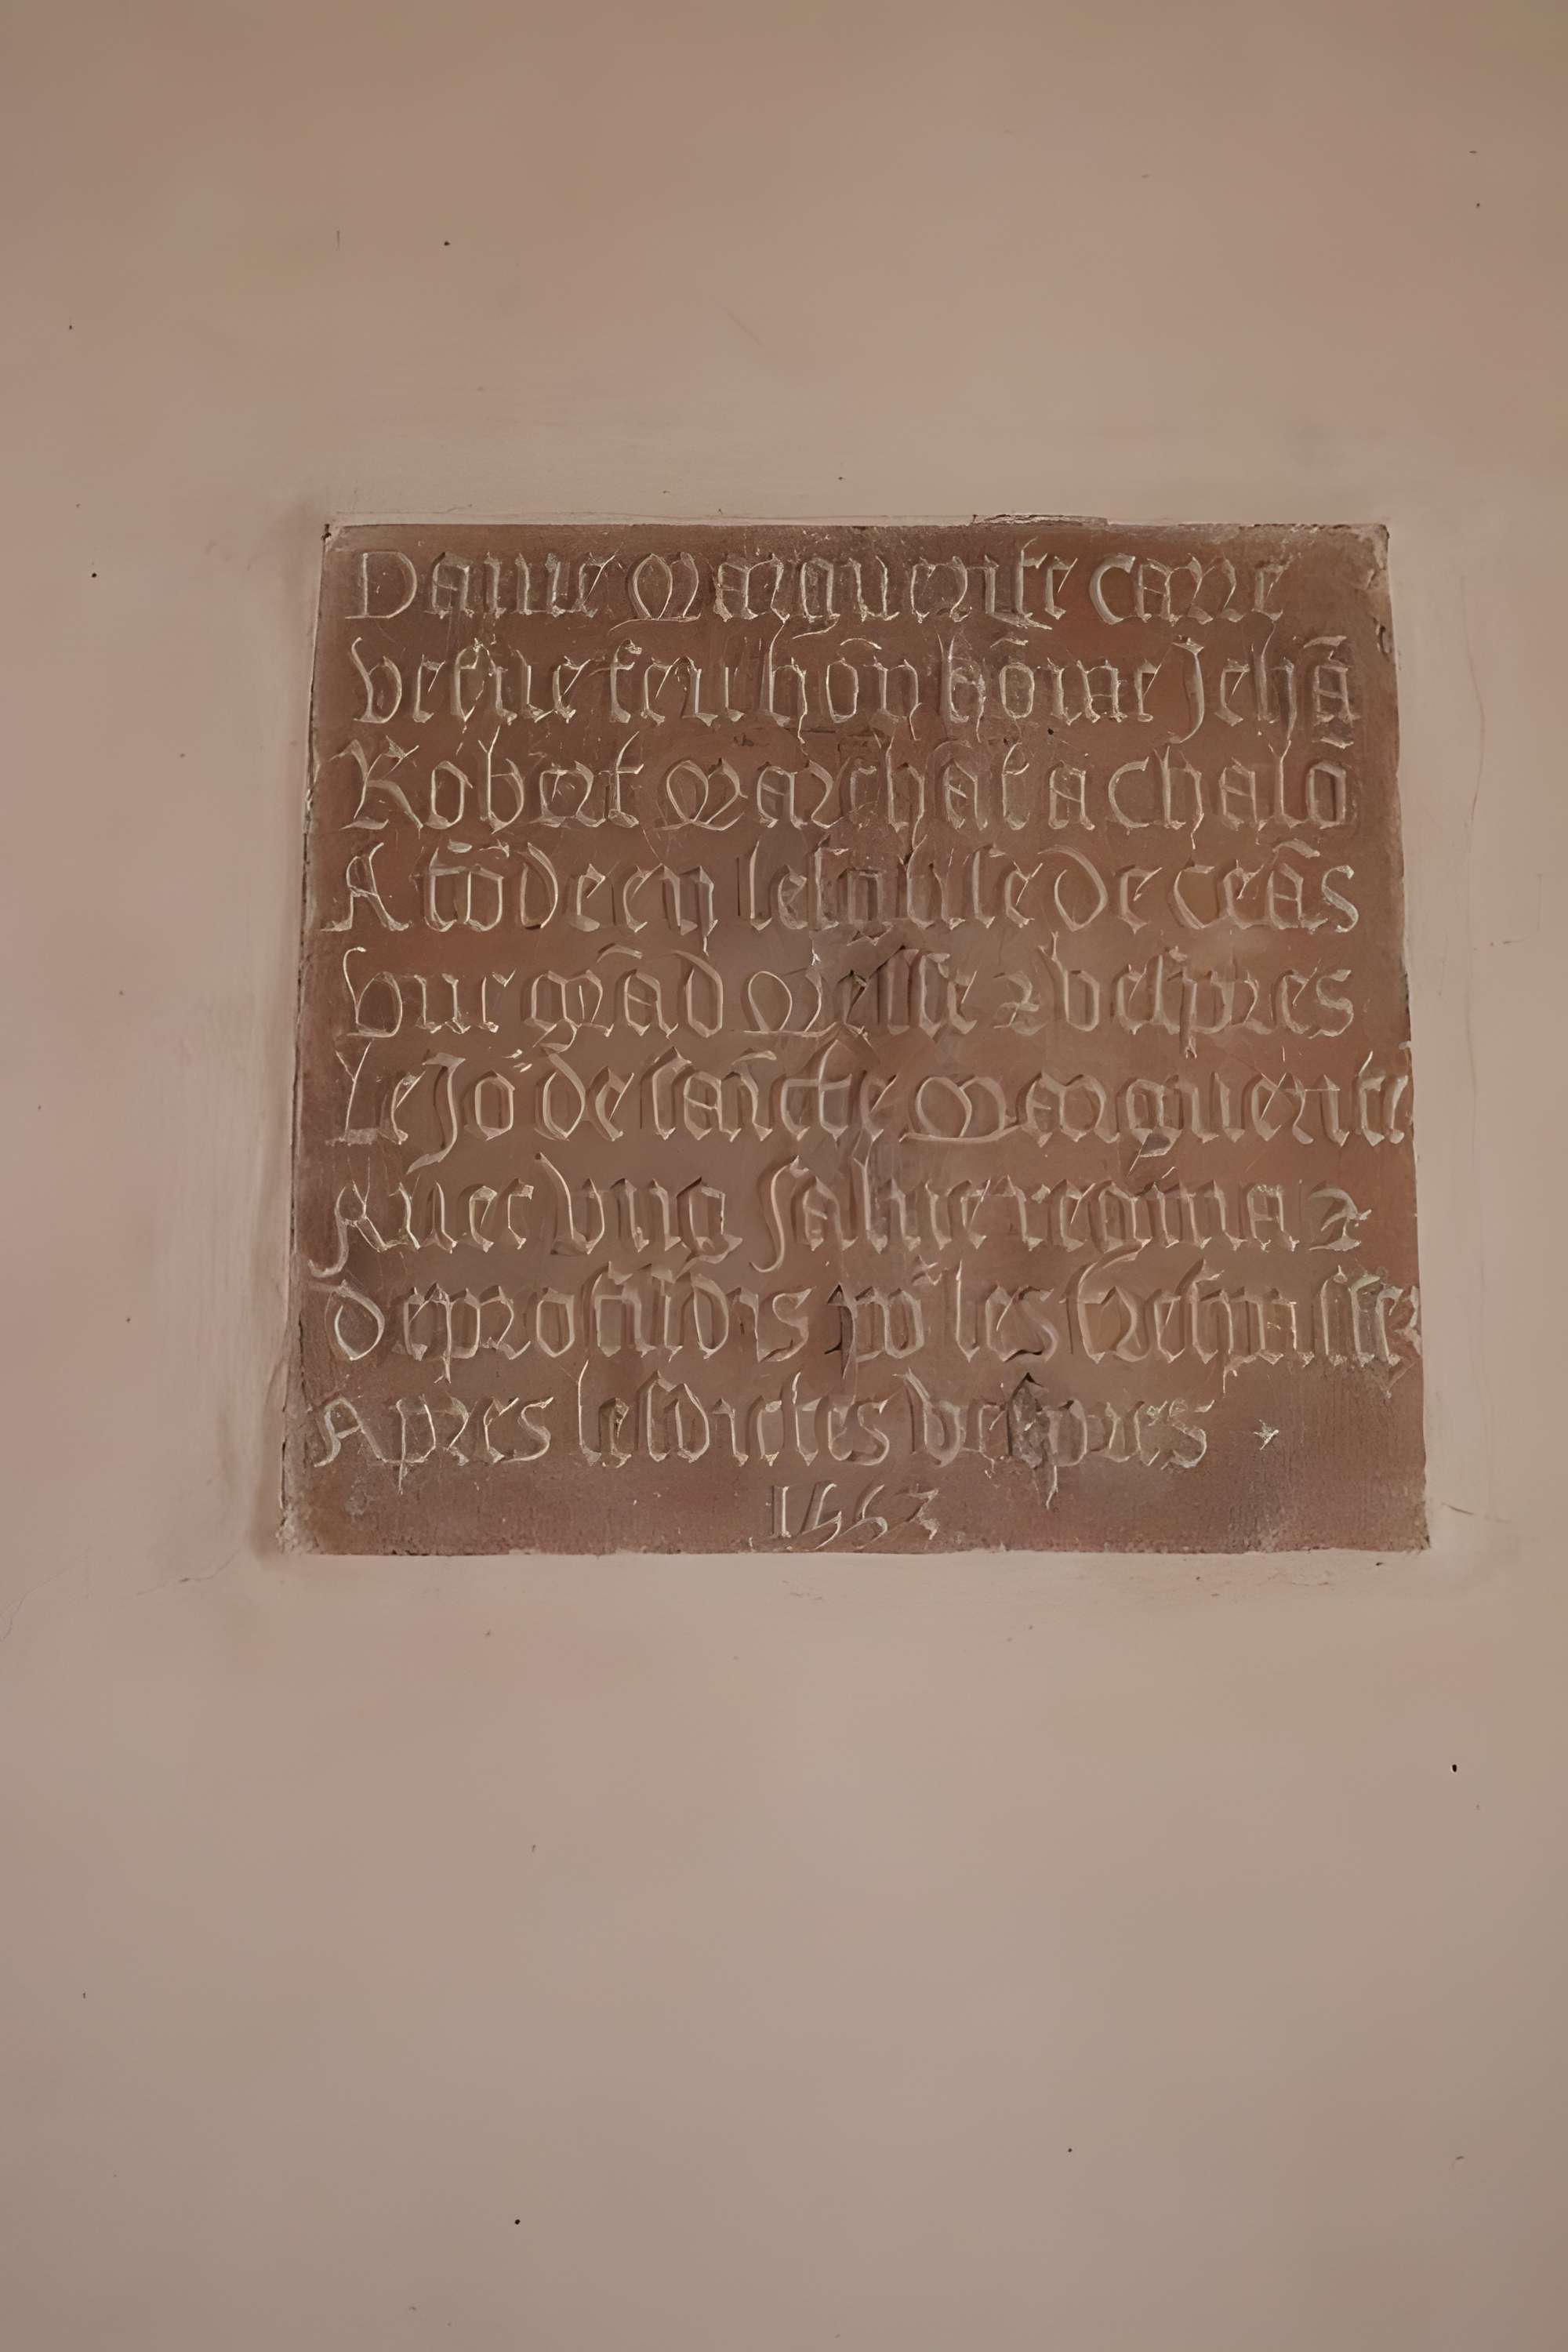 Dame Marguerite Carre
vefue feu hōn hōme Jehā
Robert Marchāt a Chalō
A fōdee en lesglise de ceās
vne grād Messe & vespres
Le Jor de saīcte Marguerite
Auec vng salue regina &
de profūdis por les trespassez
Apres lesdictes vespres